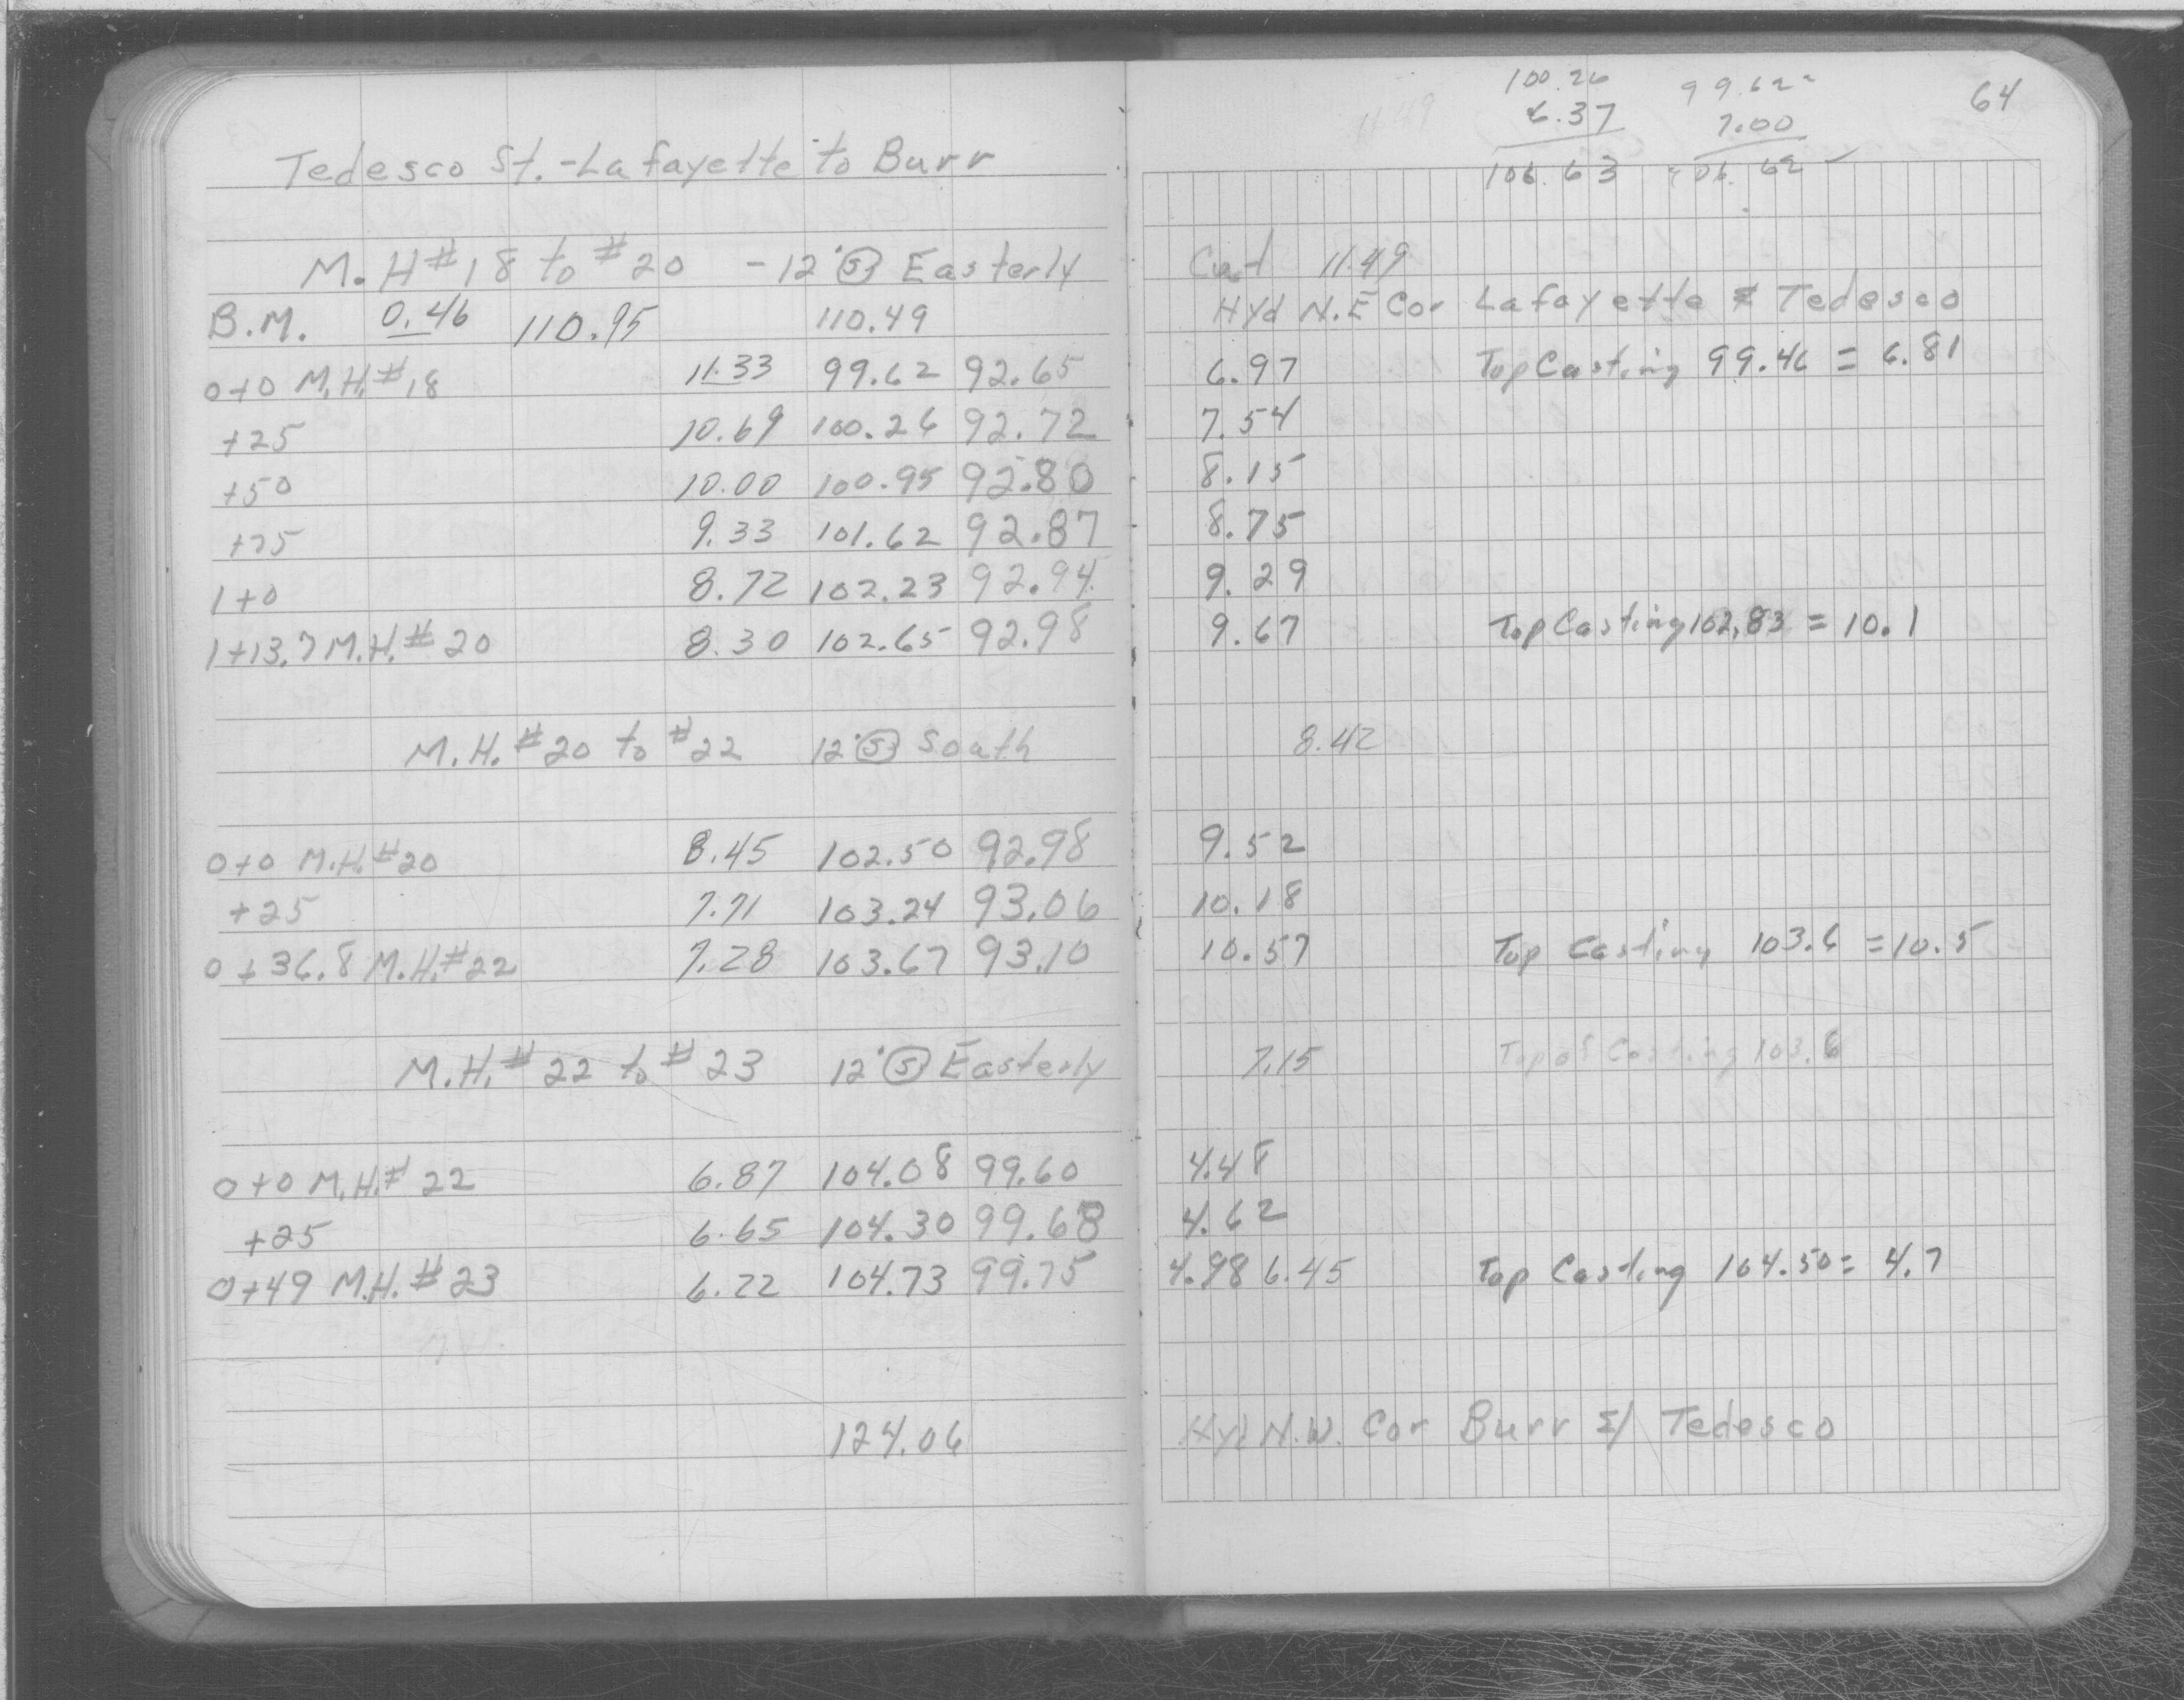 Tedesco St. - Lafayette to Burr
M.H #18 to #20 - 12" (S) Easterly
B.M. 0.46 110.95 110.49
0+0 M.H. #18 11.33 99.62 92.65
+25 10.69 100.26 92.72
+50 10.00 100.95 92.80
+75 9.33 101.62 92.87
1+0 8.72 102.23 92.94
1+13.7 M.H. #20 8.30 102.65 92.98
M.H. #20 to #22 12" (S) South
0+0 M.H. #20 8.45 102.50 92.98
+25 7.71 103.24 93.06
0+36.8 M.H. #22 7.28 103.67 93.10
M.H. #22 to #23 12" (S) Easterly
0+0 M.H. #22 6.87 104.08 99.60
+25 6.65 104.30 99.68
0+49 M.H. #23 6.22 104.73 99.75
124.06
64
11.49
100.26 99.62
6.37 7.00
106.63 106.62
Cut 11.49
Hyd N.E Cor Lafayette & Tedesco
6.97 Top Casting 99.46 = 6.81
7.54
8.15
8.75
9.29
9.67 Top Casting 102.83 = 10.1
8.42
9.52
10.18
10.57 Top Casting 103.6 = 10.5
7.15 Top of Casting 103.6
4.48
4.62
4.98 6.45 Top Casting 104.50 = 4.7
Hyd N.W. Cor Burr & Tedesco